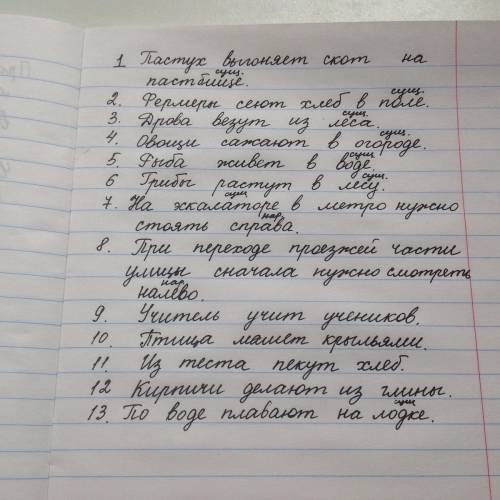 1 Пастух выгоняет скот на
сущ.
пастбище.
сущ.
2. Фермеры сеют хлеб в поле.
сущ.
3. Дрова везут из леса.
сущ.
4. Овощи сажают в огороде.
сущ.
5. Рыба живет в воде.
сущ.
6 Грибы растут в лесу.
сущ
7. На эскалаторе в метро нужно
нар
стоять справа.
8. При переходе проезжей части
улицы сначала нужно смотреть
нар
налево.
9. Учитель учит учеников.
10. Птица машет крыльями.
11. Из теста пекут хлеб.
12 Кирпичи делают из глины.
сущ
13. По воде плавают на лодке.